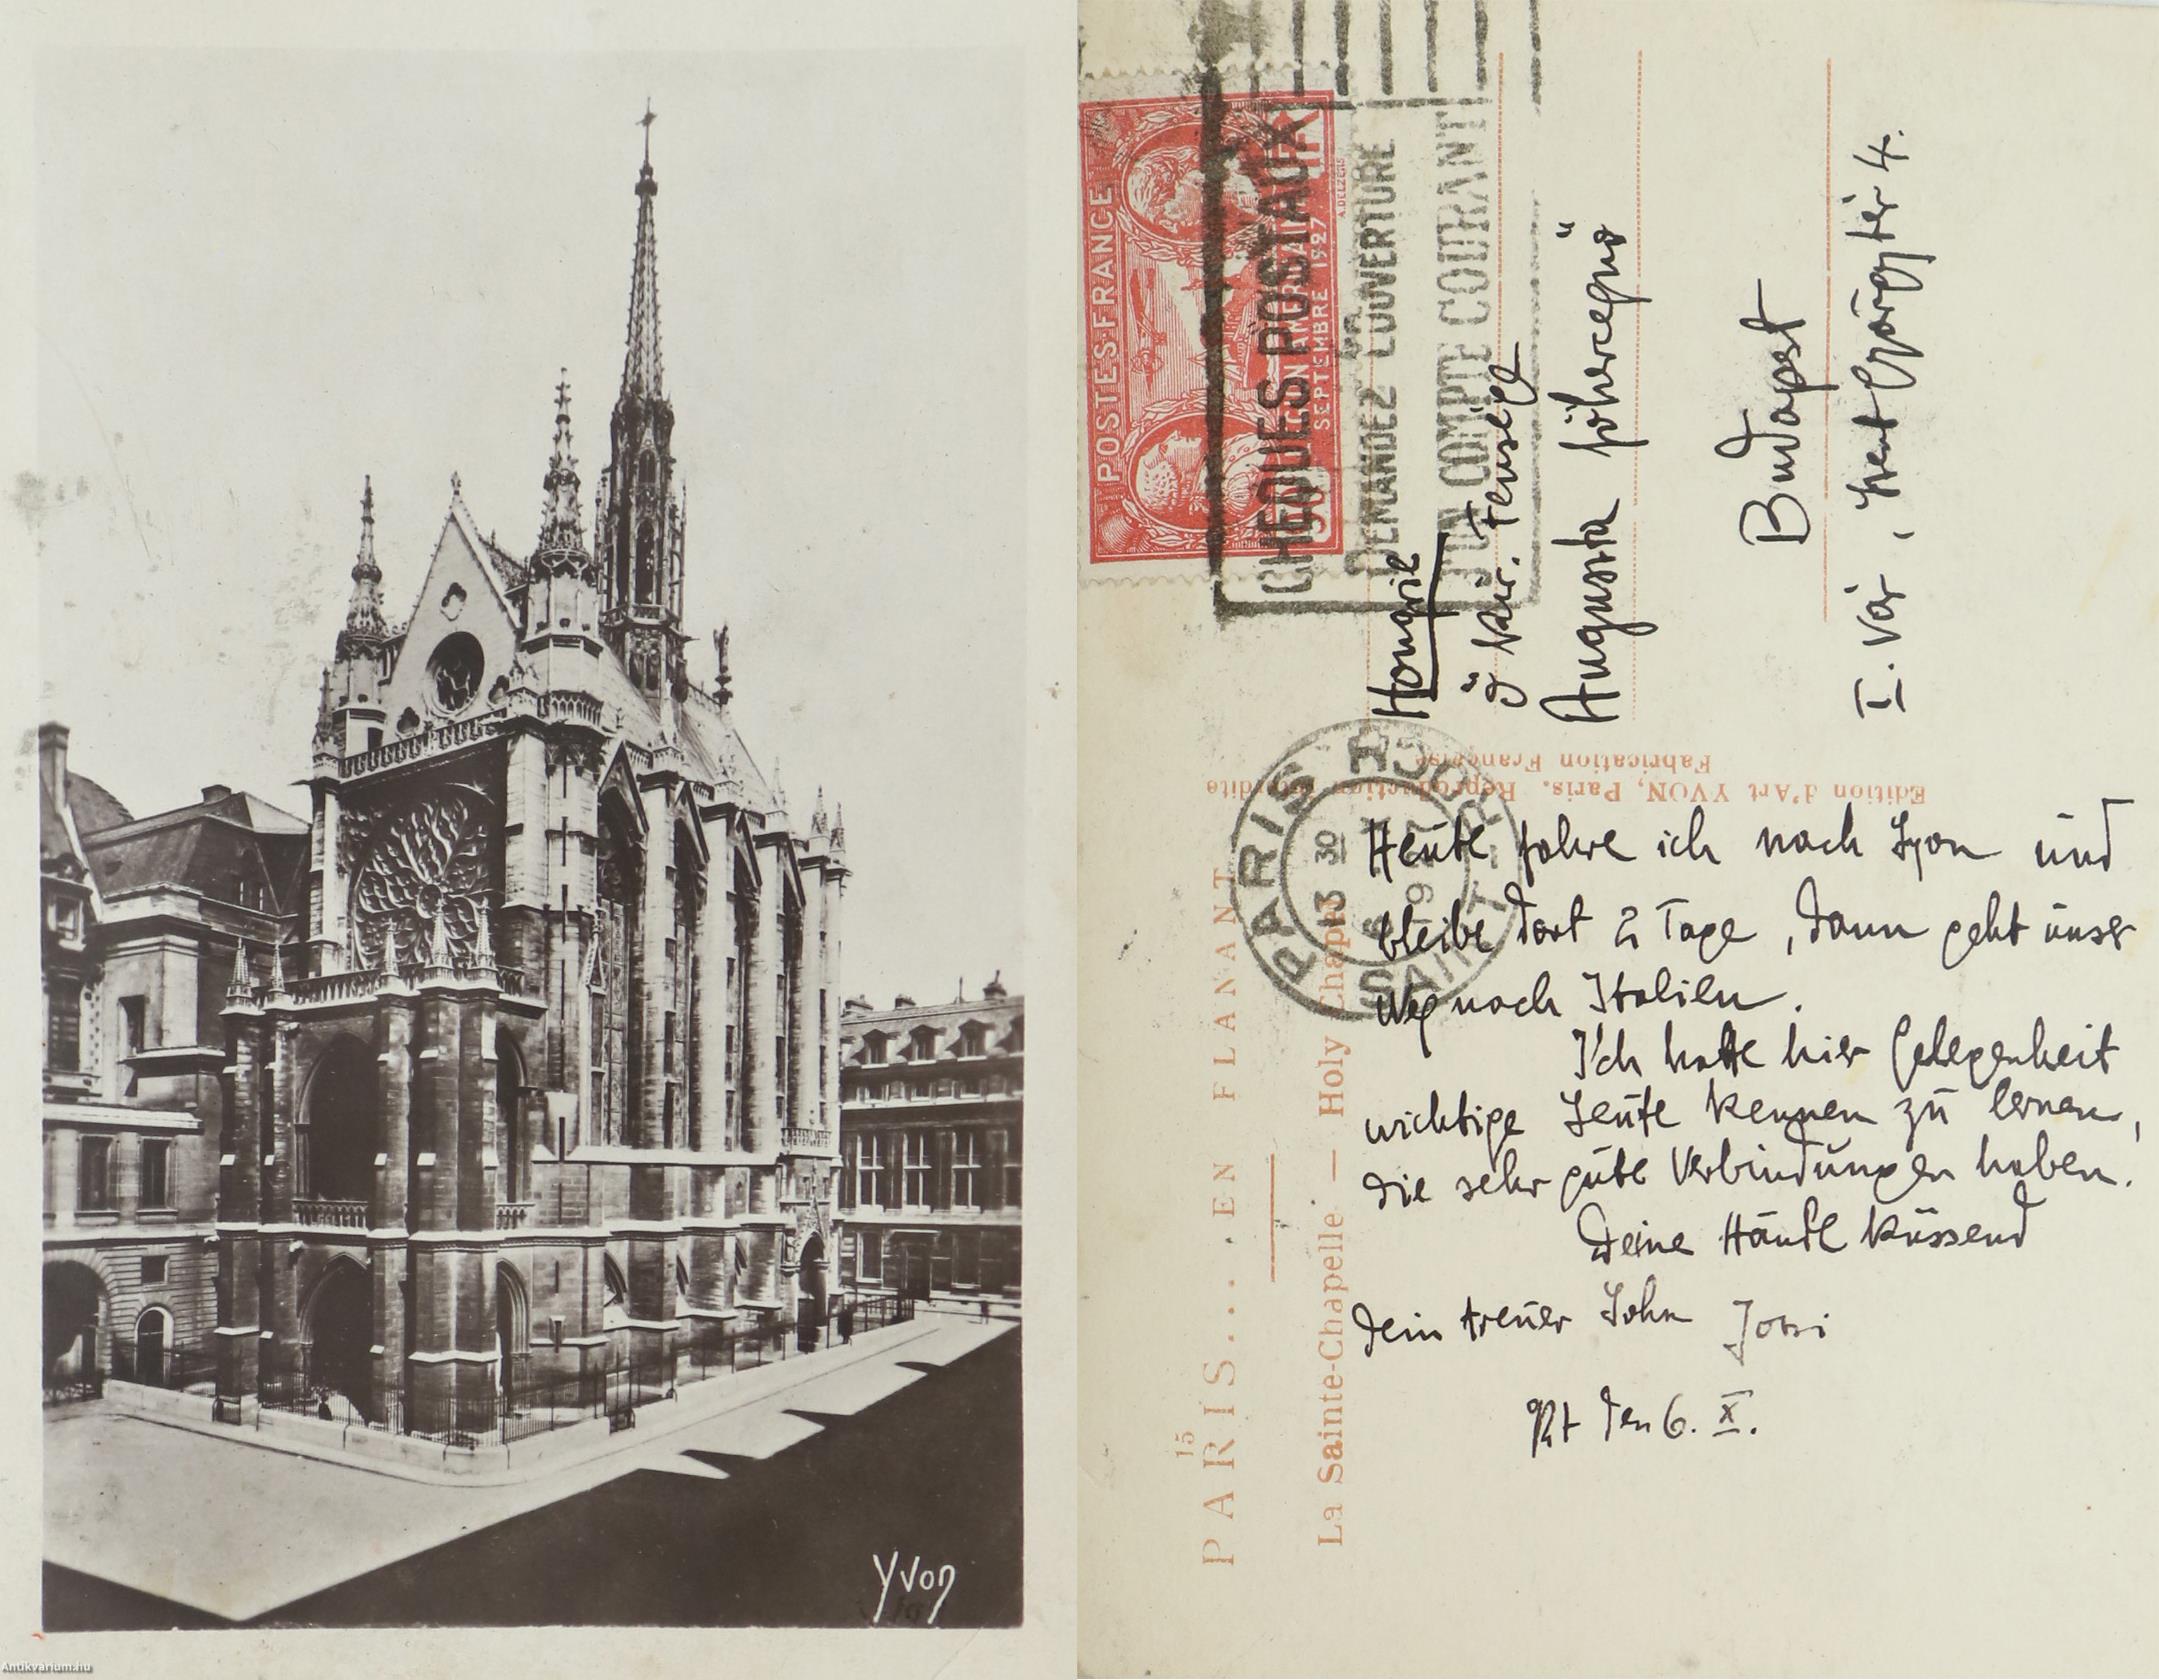 Yvon
Antikvarium.hu
POSTES-FRANCE
SEPTEMBRE 1927
A.DELZERS
CHEQUES POSTAUX
DEMANDEZ L'OUVERTURE
D'UN COMPTE COURANT
Hongrie
Ő kir. Fensége
Augusta főhercegnő
Budapest
I. Vár, Szent György tér 4.
PARIS
13 30
Edition d'Art YVON, Paris. Reproduction interdite
Fabrication Française
15
PARIS.... EN FLANANT
La Sainte-Chapelle — Holy Chapel
Heute fahre ich nach Lyon und
bleibe dort 2 Tage, dann geht unser
Weg nach Italien.
Ich hatte hier Gelegenheit
wichtige Leute kennen zu lernen,
die sehr gute Verbindungen haben.
Deine Hände küssend
dein treuer Sohn Joszi
den 6. X.